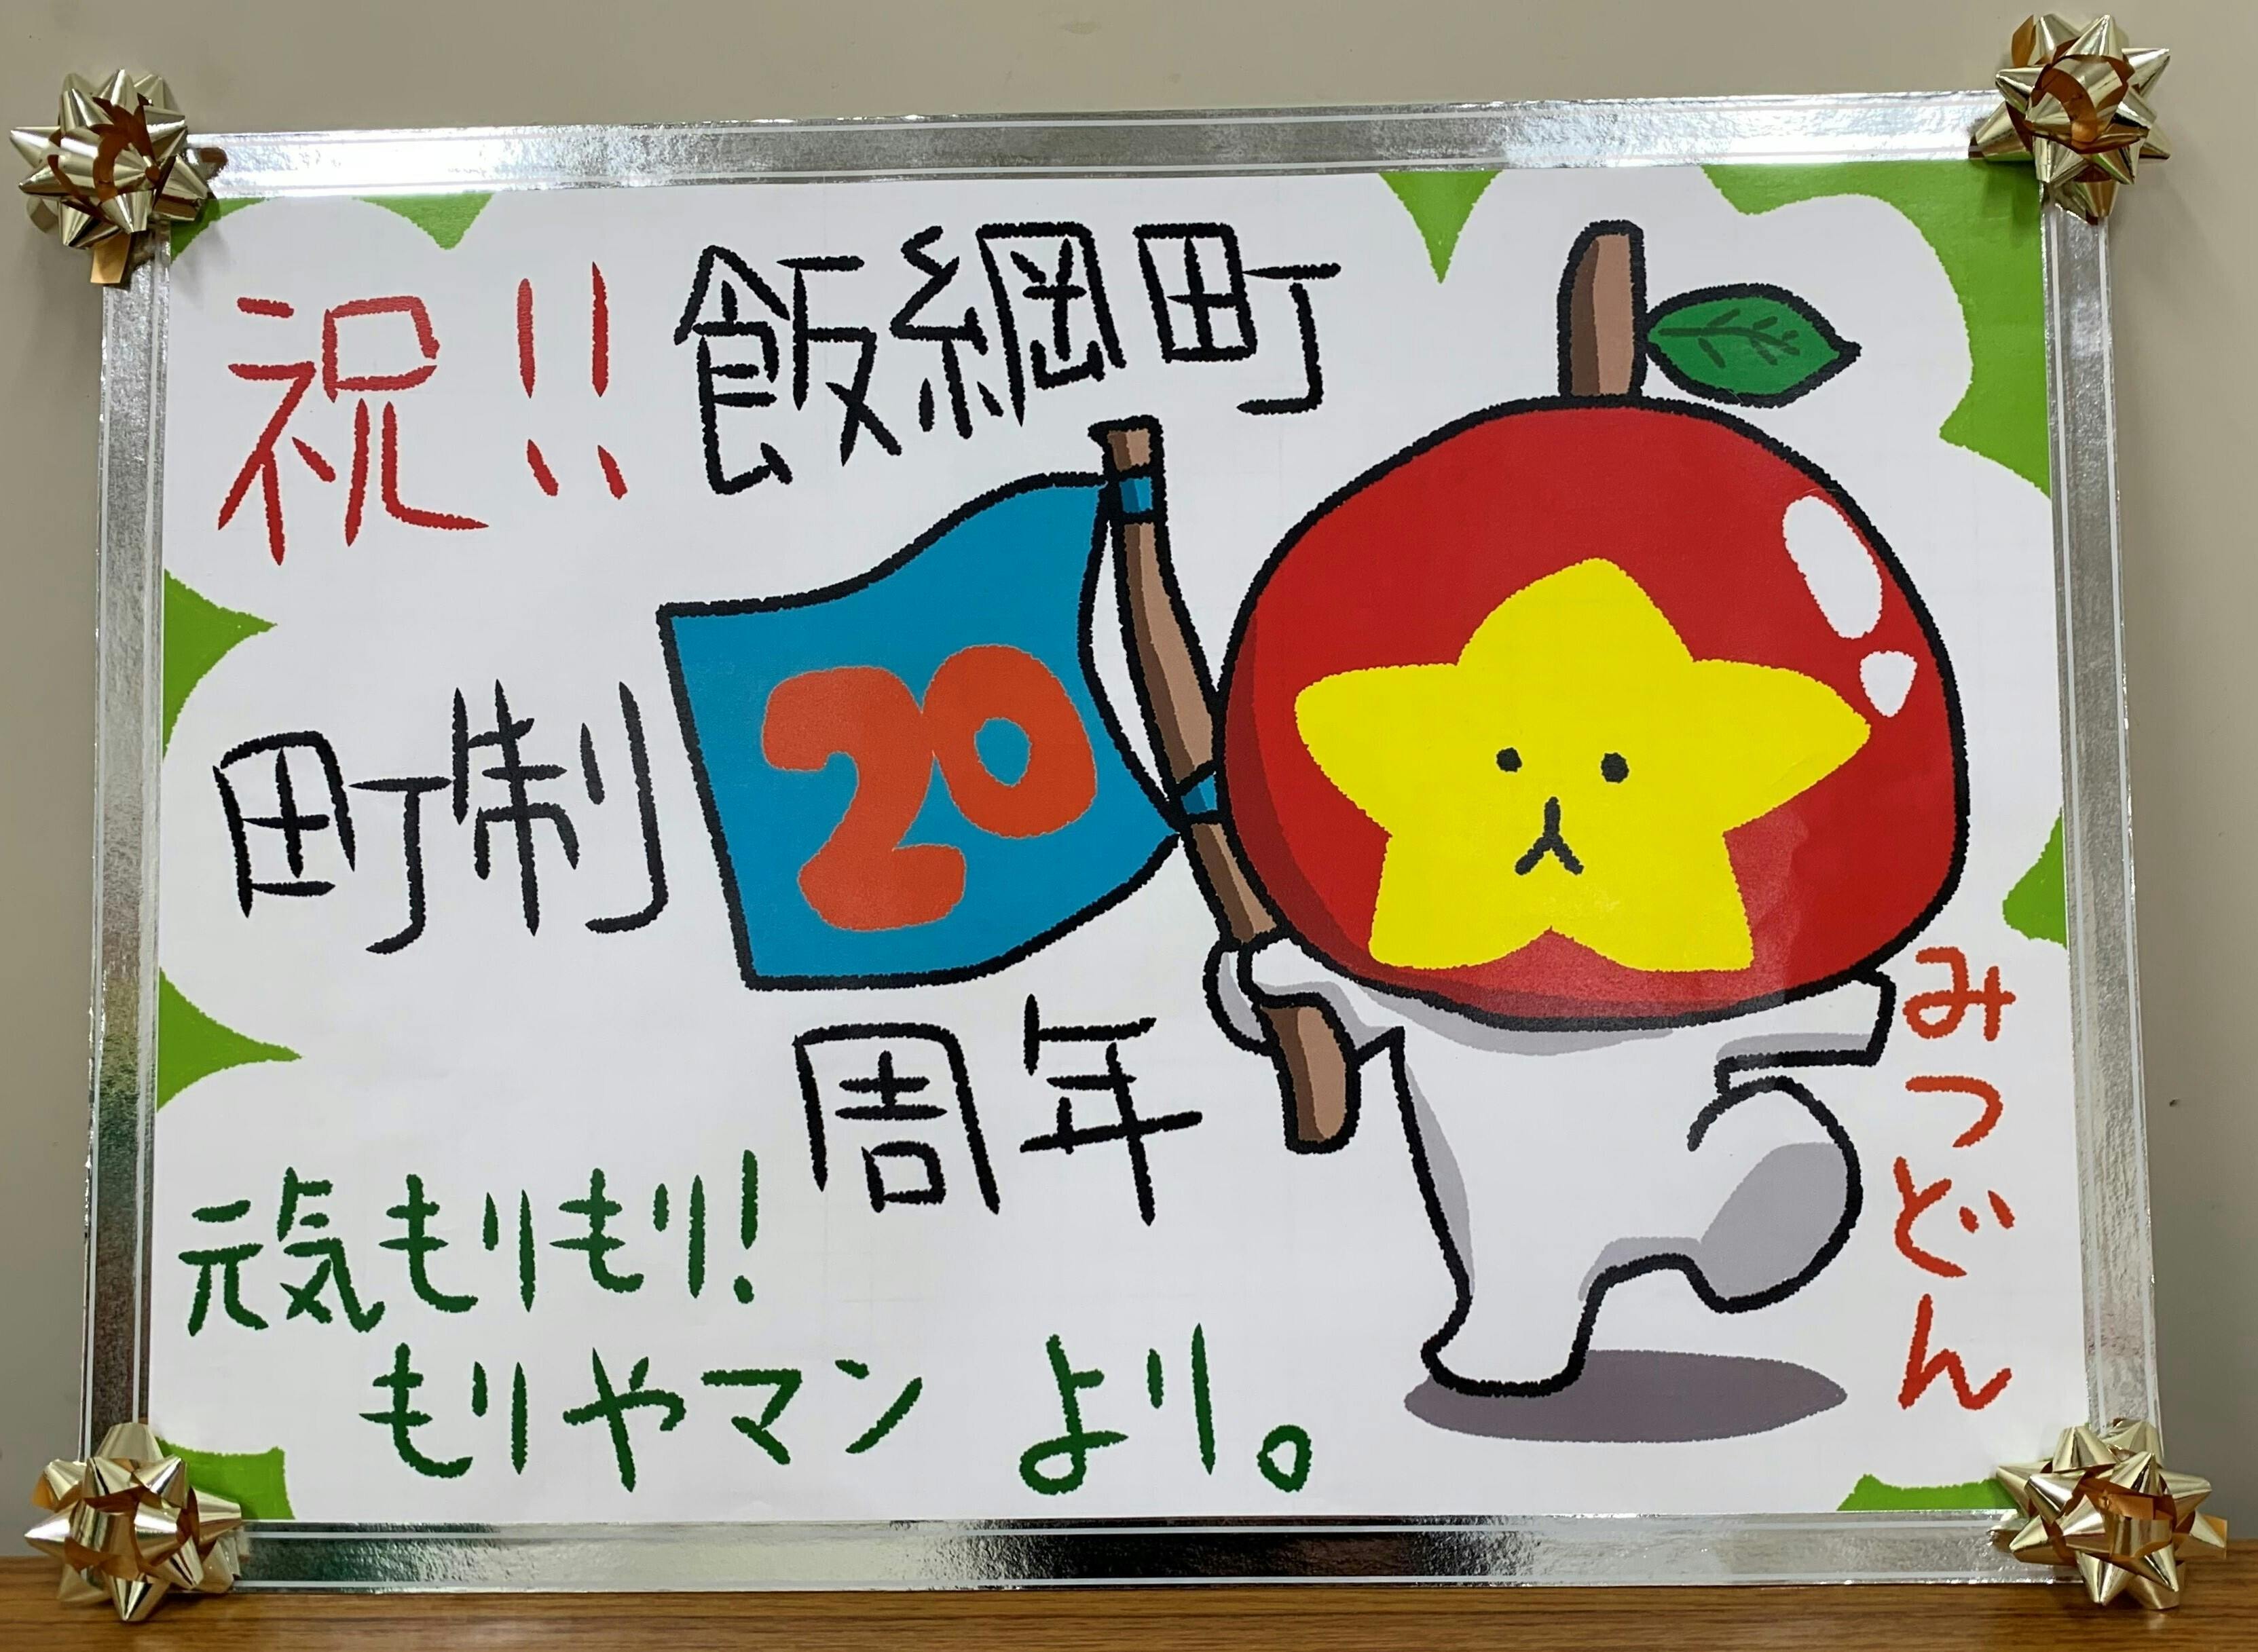 祝!!
飯綱町
町制
20
周年
元気もりもり!
もりやマン より。
みつどん